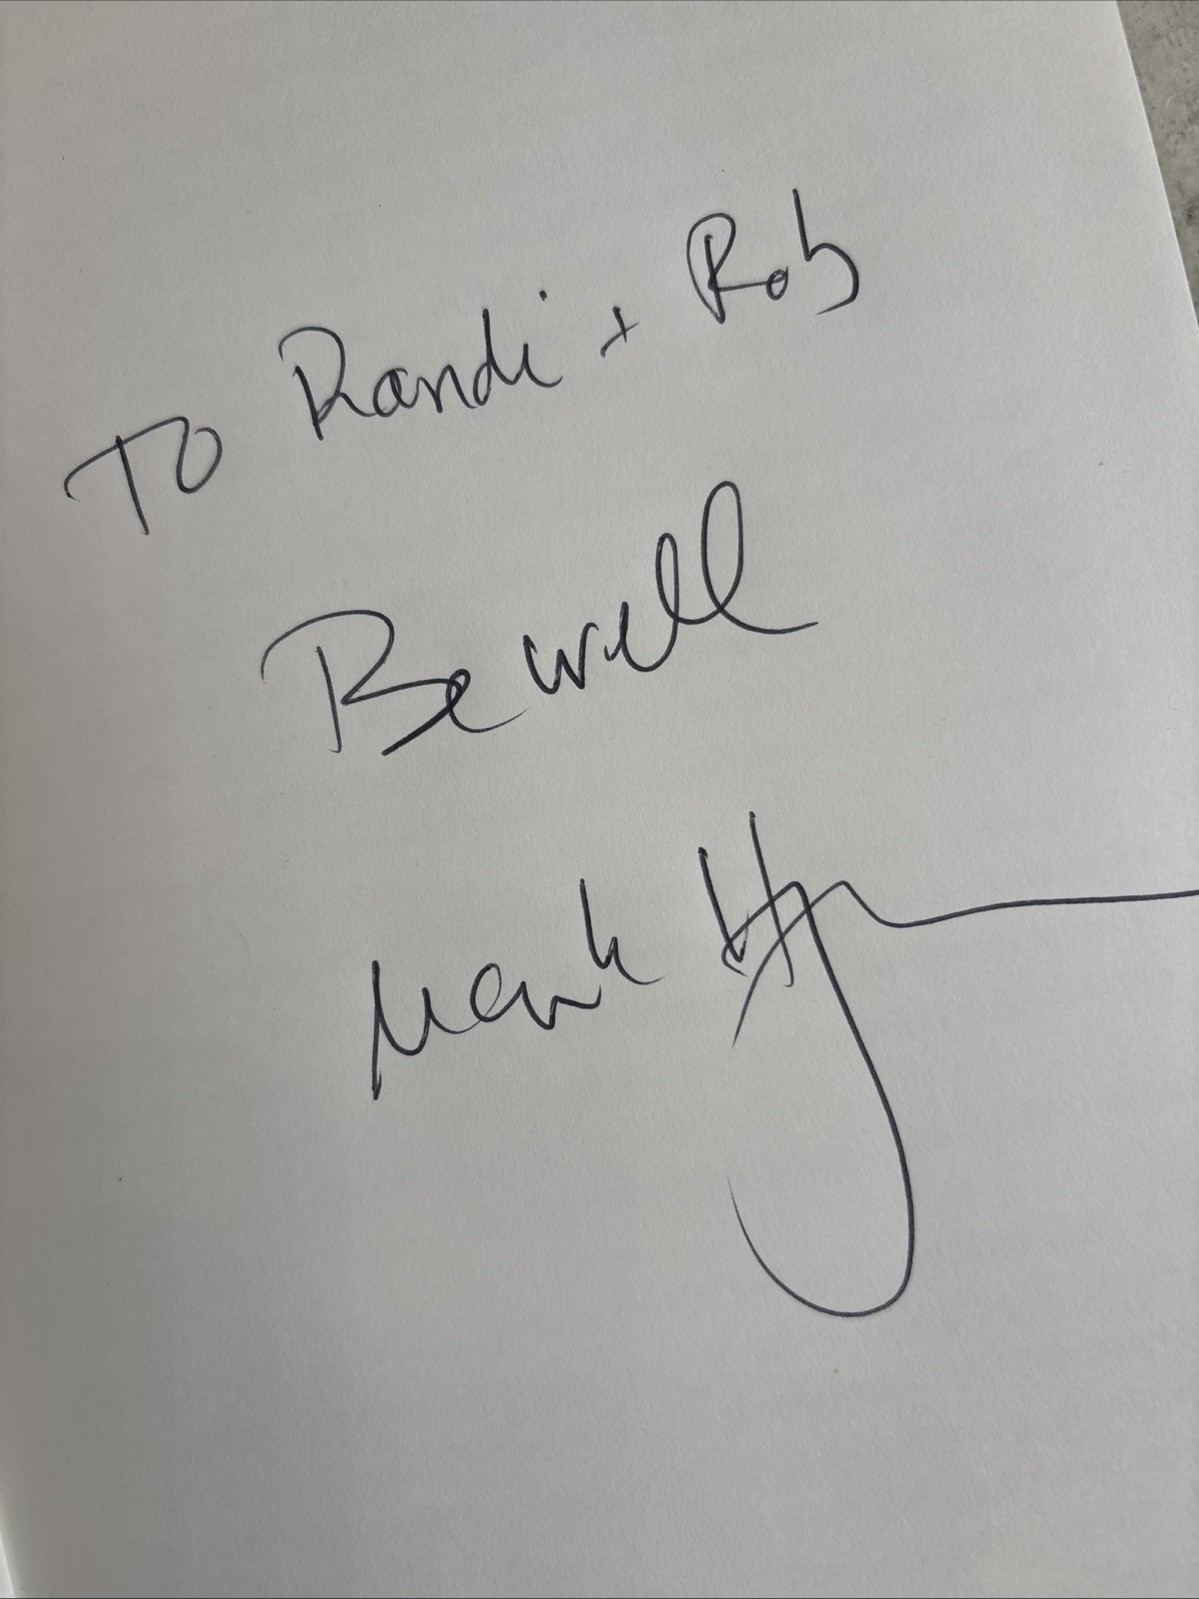 To Randi + Rob
Be well
Mark Hy